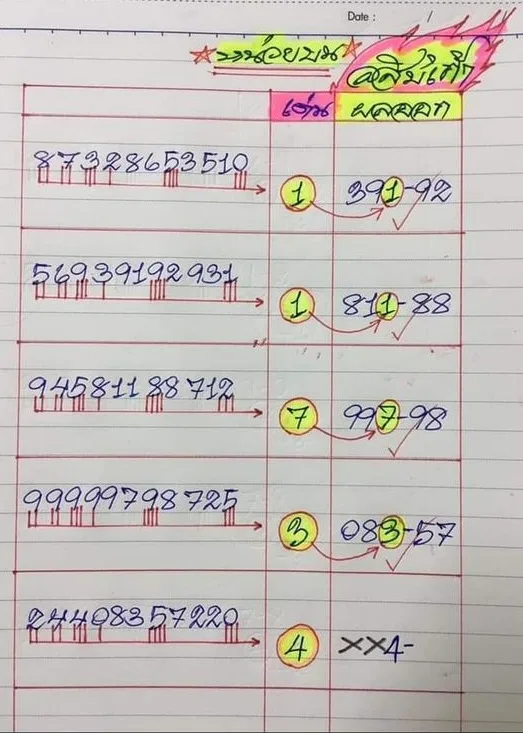 Date : / /
หน่วยบน
เด่น ผลออก
87328653510 1 391-92
56939192931 1 811-88
94581188712 7 997-98
99999798725 3 083-57
24408357220 4 ××4-